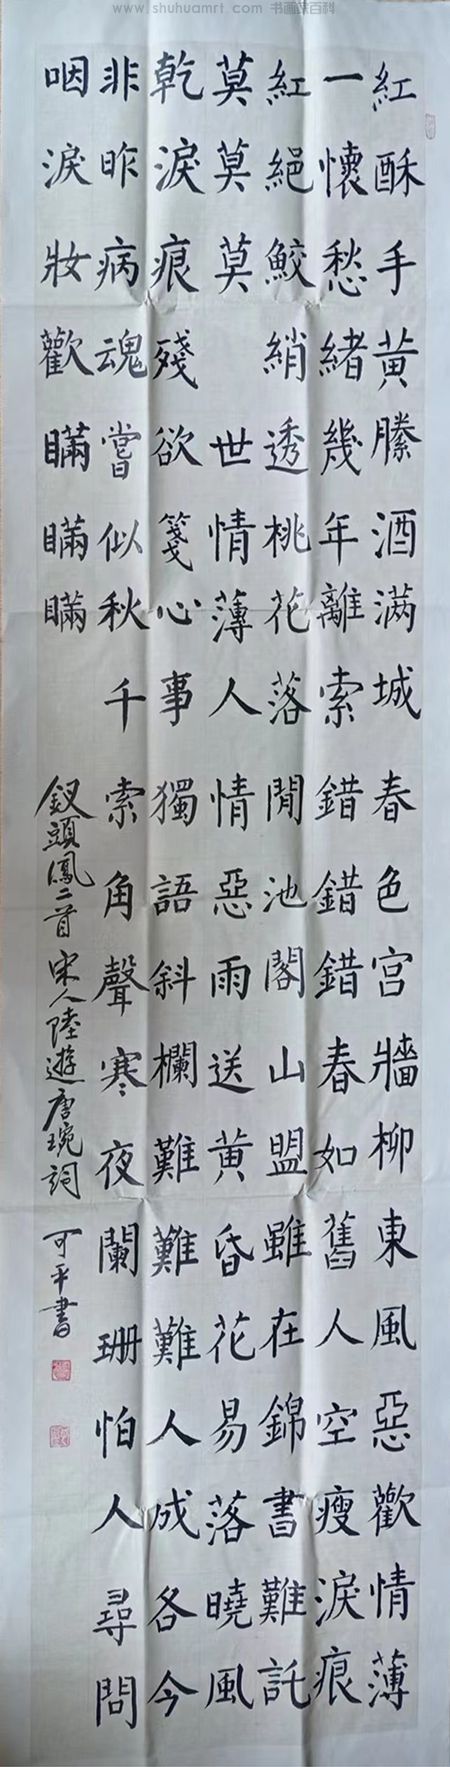 www.shuhuamrt.com 书画家百科
紅酥手黄縢酒满城春色宫牆柳東風惡歡情薄
一懷愁緒幾年離索錯錯錯春如舊人空瘦淚痕
紅絕鮫綃透桃花落閒池閣山盟雖在錦書難託
莫莫莫 世情薄人情惡雨送黄昏花易落曉風
乾淚痕殘欲箋心事獨語斜欄難難難人成各今
非昨病魂嘗似秋千索角聲寒夜闌珊怕人尋問
咽淚妝歡瞞瞞瞞 釵頭鳳二首 宋人陸遊唐琬詞 可平書